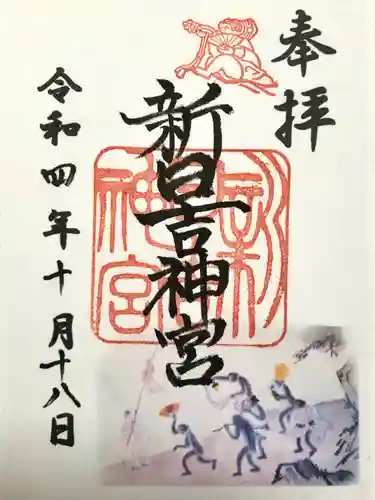 奉拝
新日吉神宮
令和四年十月十八日